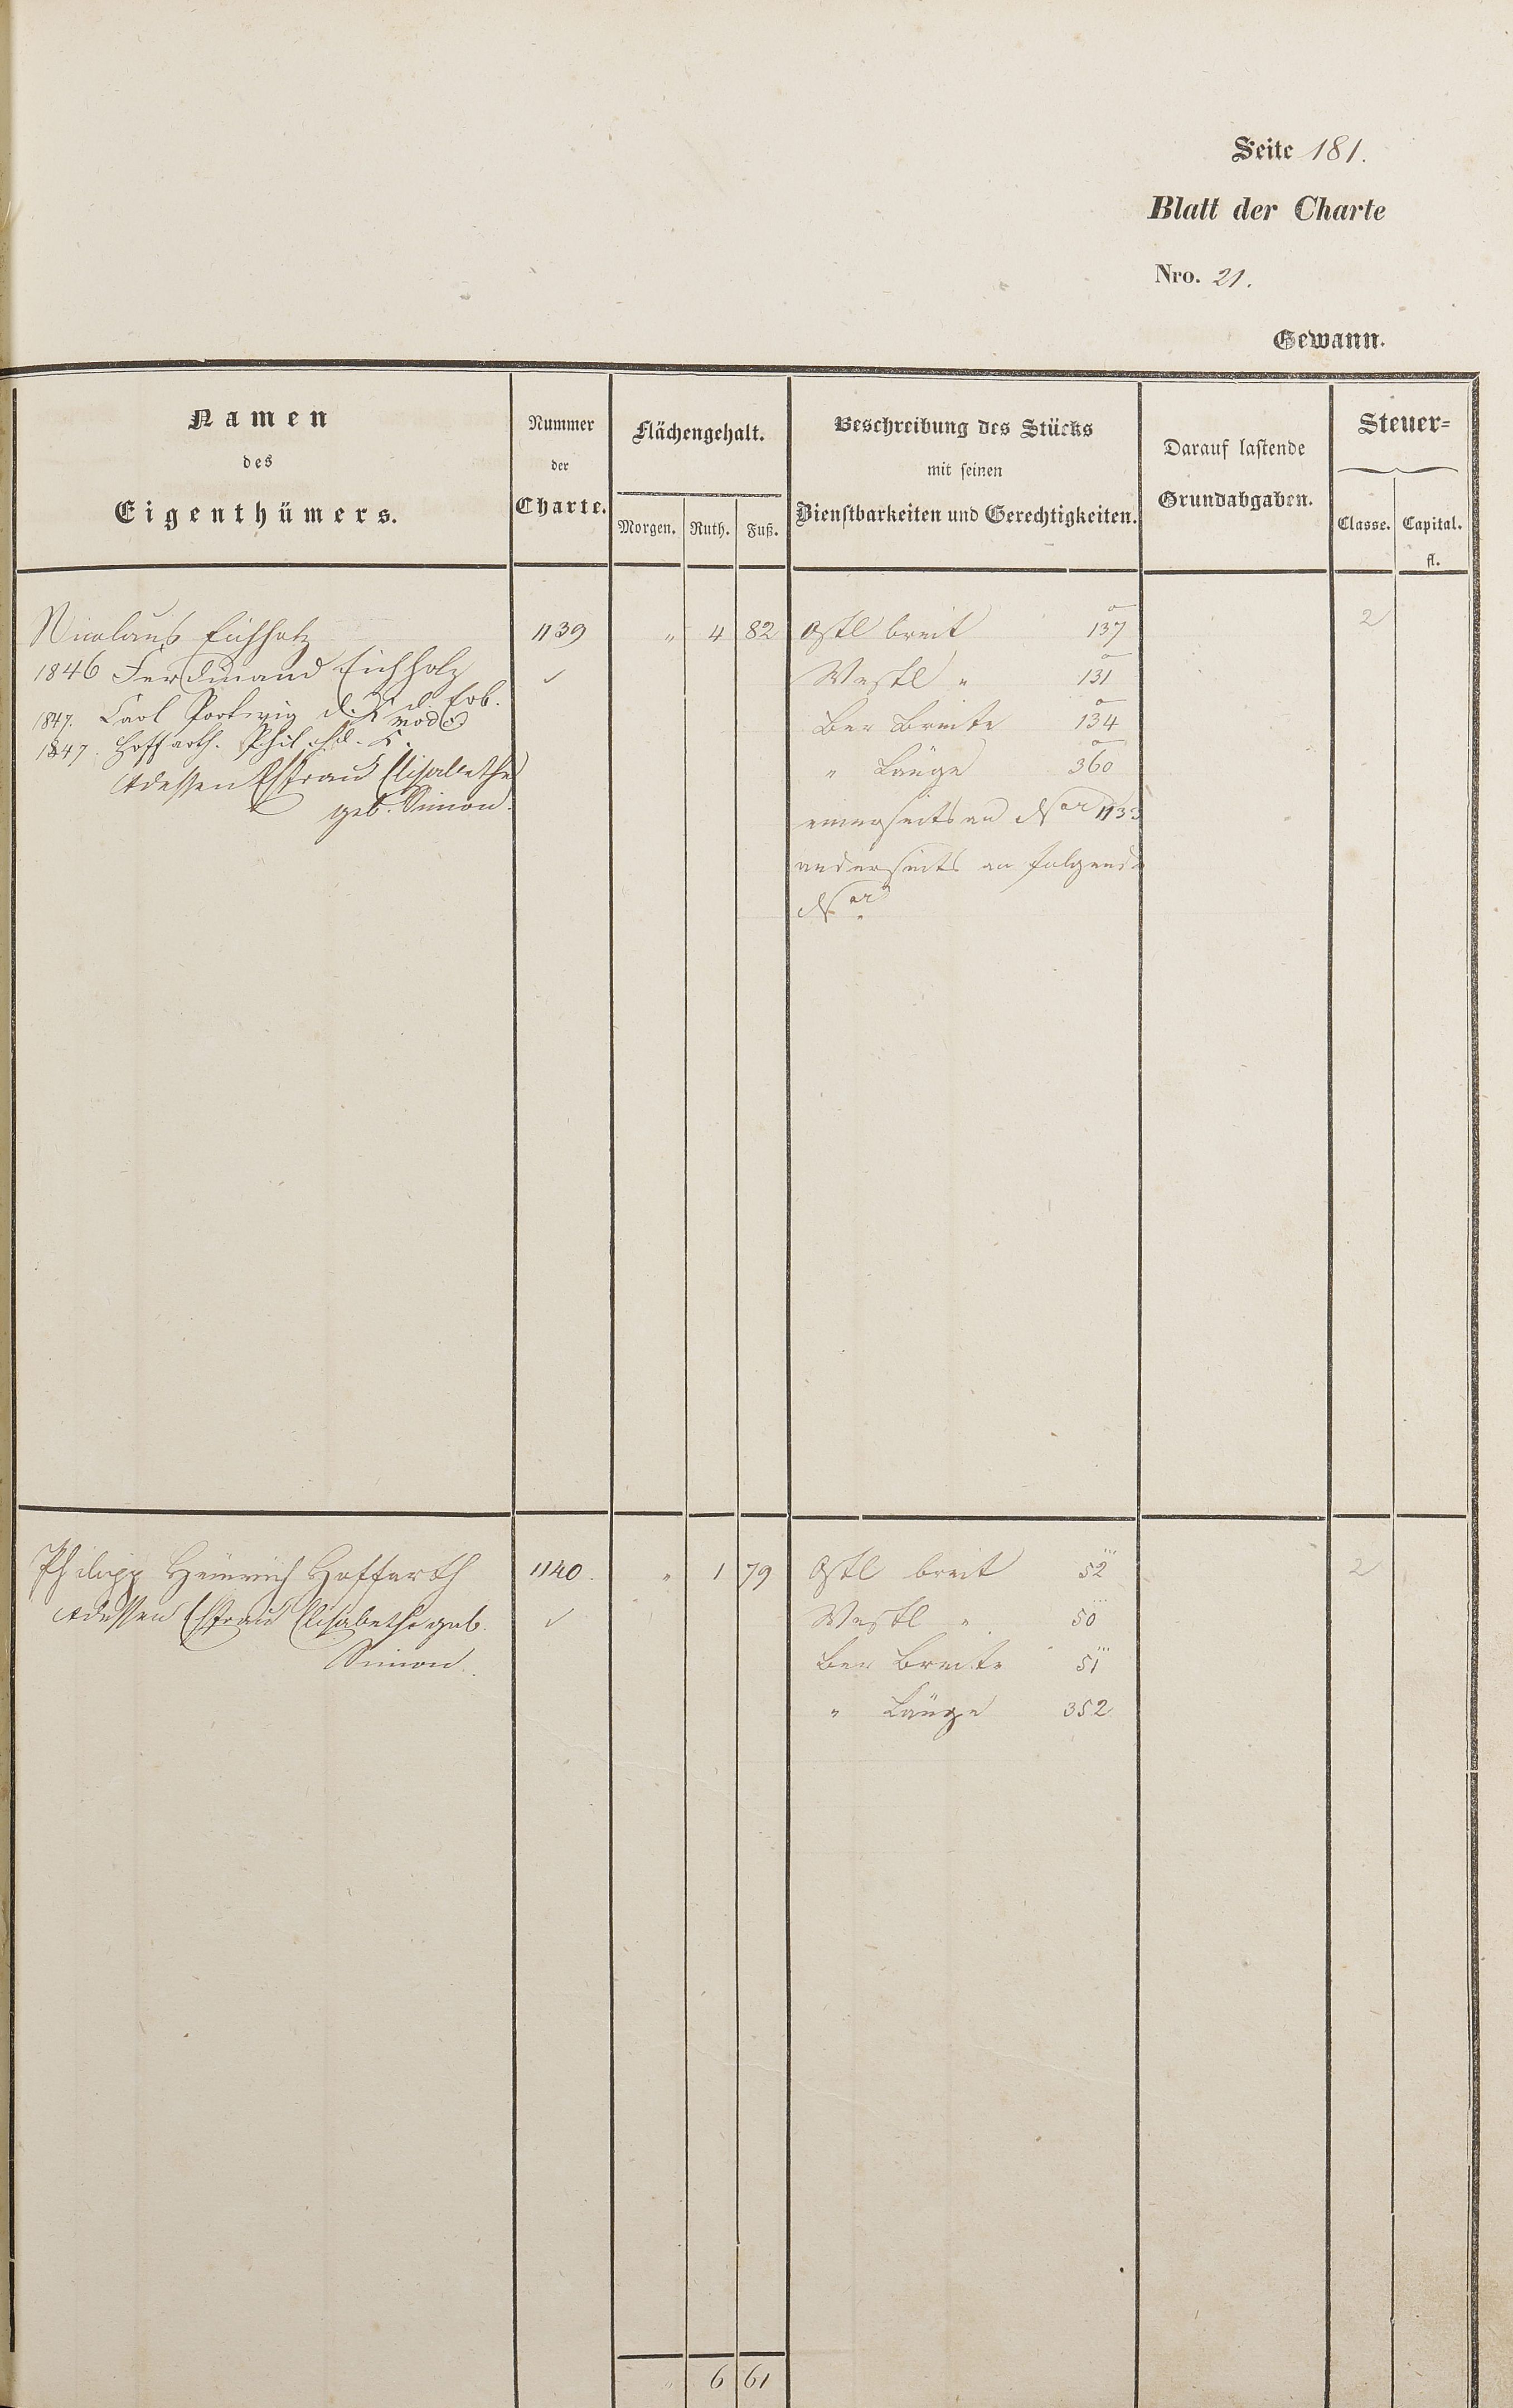 Seite 181.
Blatt der Charte
Nro. 21.
Gewann.
Namen
des
Eigenthümers.
Nummer
der
Charte.
Flächengehalt.
Morgen. Ruth. Fuß.
Beschreibung des Stücks
mit seinen
Dienstbarkeiten und Gerechtigkeiten.
Darauf lastende
Grundabgaben.
Steuer=
Classe. Capital.
fl.
Nicolaus Eichholz 1139 " 4 82 Ostl breit 137 2
1846 Ferdinand Eichholz ✓ Westl " 131
1847. Carl d. K. d. Erb.
modo
Ber Breite 134
1847. Hoffarth. Phil. Hd. K.
" Länge 360
dessen Ehfrau Elisabetha
geb. Simon.
einerseits an Nor 1133
anderseits an folgende
Nor
Philipp Heinrich Hoffarth 1140. " 1 79 Ostl breit 52 2
dessen Ehfrau Elisabetha geb. ✓ Westl " 50
Simon. Ber Breite 51
" Länge 352
" 6 61